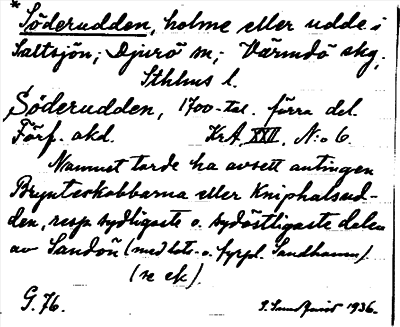 * Söderudden, holme eller udde i
Saltsjön; Djurö sn; Värmdö skg,
Sthlms l.
Söderudden, 1700-tal. förra del.
Förf. okd. KrA, XXII, N:o 6.
Namnet torde ha avsett antingen
Brynteskobbarna eller Kniphalsud-
den, resp. sydligaste o. sydöstligaste delen
av Sandön (med lots- o. fyrpl. Sandhamn)
(se ek).
G. 76. 1936.